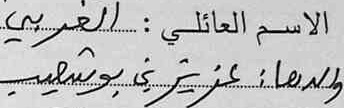 الاسم العائلي : الغربي
والدها : عزيزي بوشعيب